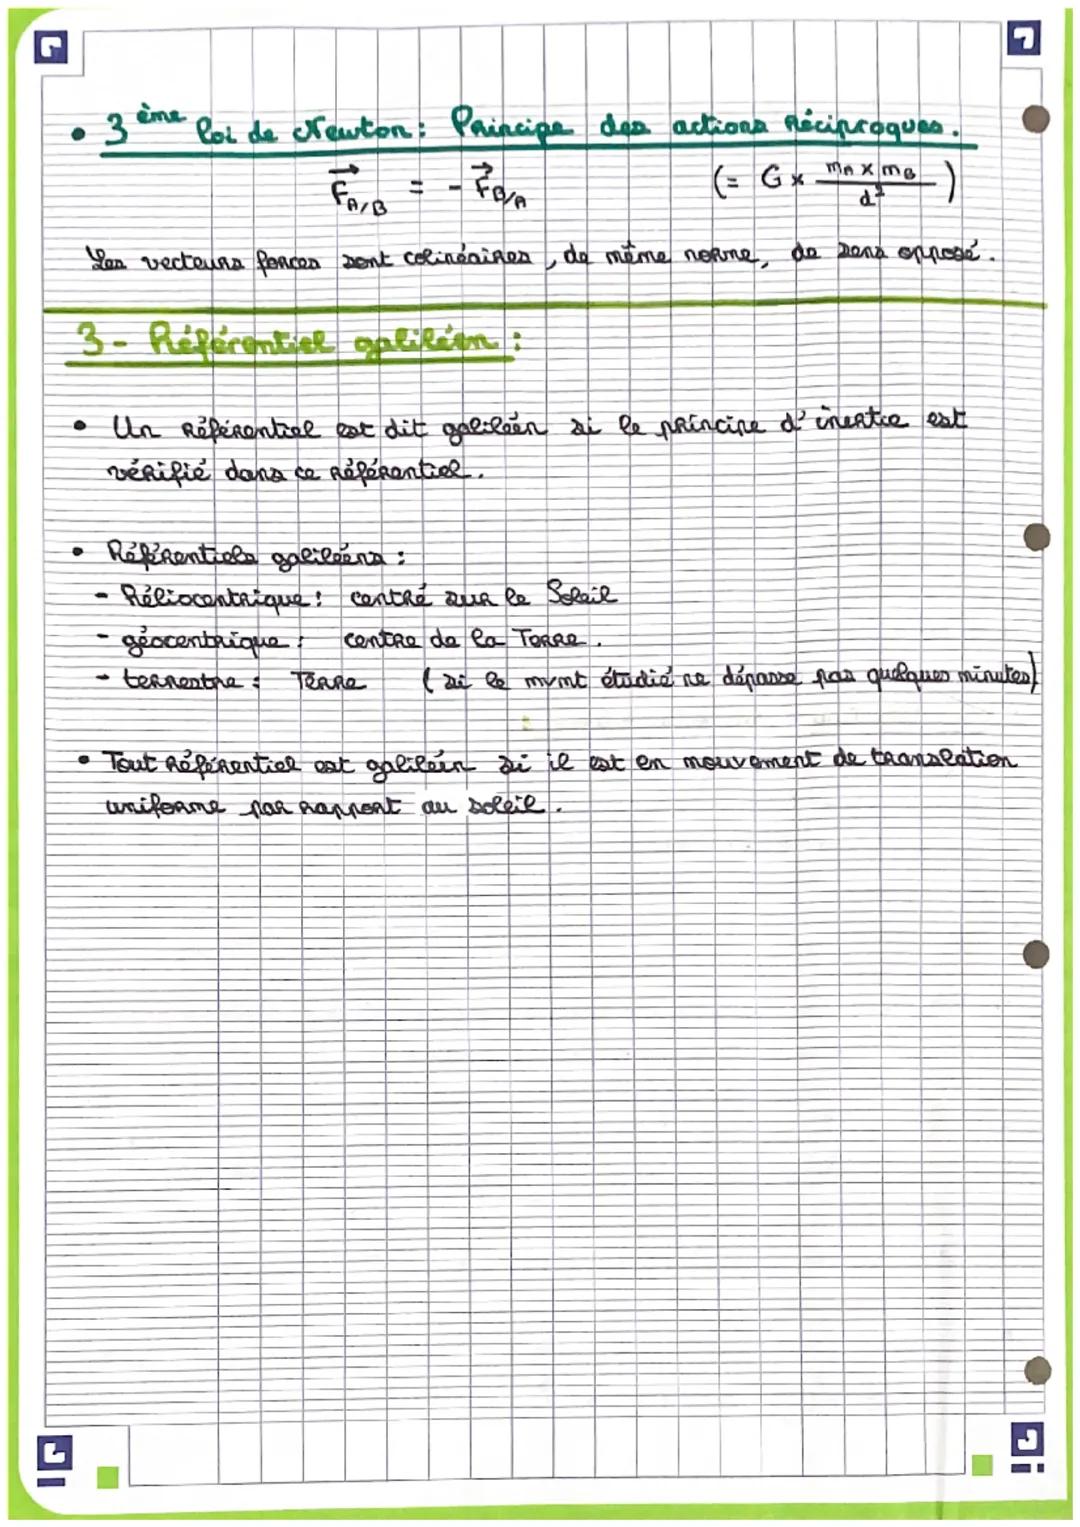 • 3ème loi de Newton : Principe des actions réciproques.
F⃗A/B = - F⃗B/A (= G x mA x mB / d²)
Les vecteurs forces sont colinéaires, de même norme, de sens opposé.
3 - Référentiel galiléen :
• Un référentiel est dit galiléen si le principe d'inertie est
vérifié dans ce référentiel.
• Référentiels galiléens :
- Héliocentrique : centré sur le Soleil
- géocentrique : centre de la Terre.
- terrestre : Terre (si le mvmt étudié ne dépasse pas quelques minutes)
• Tout référentiel est galiléen si il est en mouvement de translation
uniforme par rapport au soleil.